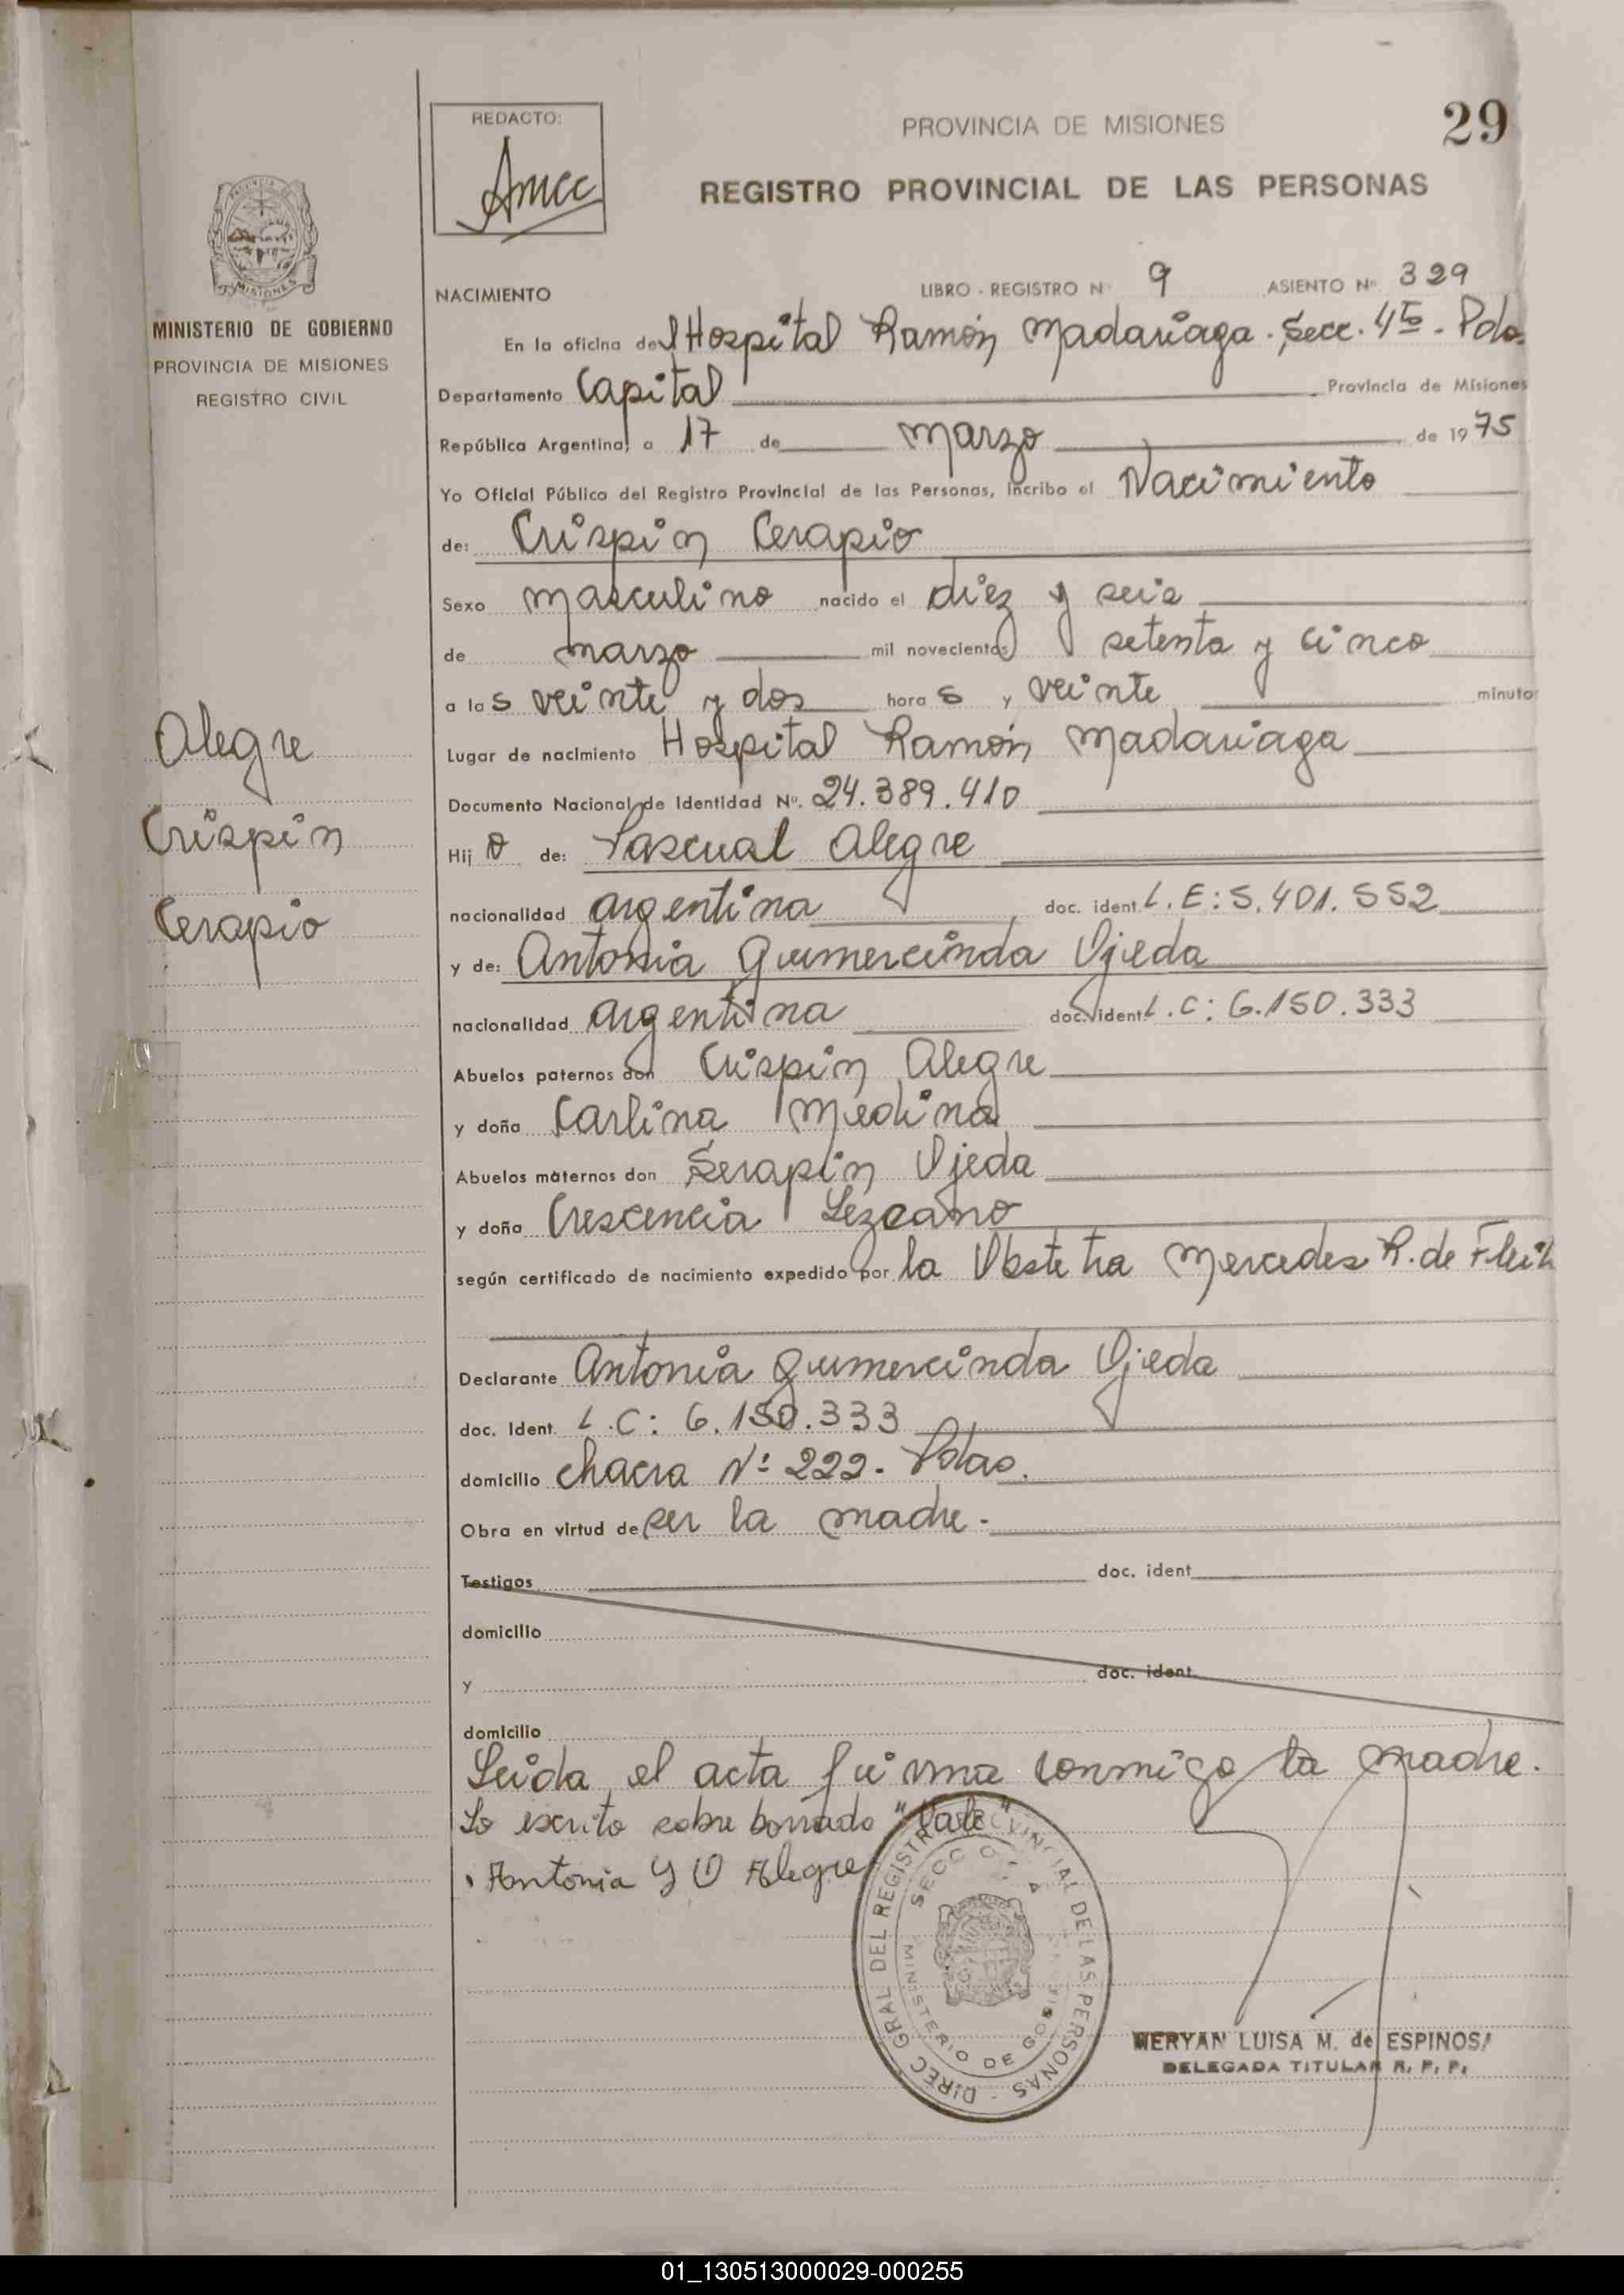 REDACTO:
Amcc
PROVINCIA DE MISIONES
29
REGISTRO PROVINCIAL DE LAS PERSONAS
MINISTERIO DE GOBIERNO
PROVINCIA DE MISIONES
REGISTRO CIVIL
NACIMIENTO LIBRO - REGISTRO Nº 9 ASIENTO Nº 329
En la oficina del Hospital Ramón Madariaga. Secc. 4ta - Pdas.
Departamento Capital Provincia de Misiones
República Argentina, a 17 de marzo de 1975
Yo Oficial Público del Registro Provincial de las Personas, incribo el Nacimiento
de: Crispin Cerapio
Sexo masculino nacido el diez y seis
de marzo mil novecientos setenta y cinco
a las veinte y dos horas y veinte minuto
Alegre
Crispin
Cerapio
Lugar de nacimiento Hospital Ramón Madariaga
Documento Nacional de Identidad Nº. 24.389.410
Hijo de: Pascual Alegre
nacionalidad argentina doc. ident. L.E: 5.401.552
y de: Antonia Gumercinda Ojeda
nacionalidad argentina doc. ident. L.C: 6.150.333
Abuelos paternos don Crispin Alegre
y doña Carlina Medina
Abuelos maternos don Serapin Ojeda
y doña Crescencia Lezcano
según certificado de nacimiento expedido por la Obstetra Mercedes R. de
Declarante Antonia Gumercinda Ojeda
doc. Ident. L.C: 6.150.333
domicilio chacra Nº 222- Pdas.
Obra en virtud de ser la madre.-
Testigos doc. ident
domicilio
y doc. ident
domicilio
Leida el acta firma conmigo la madre.
Lo escrito sobre borrado "Vale"
Antonia G O Alegre
DIREC GRAL DEL REGISTRO PROVINCIAL DE LAS PERSONAS -
MINISTERIO DE
MERYAN LUISA M. de ESPINOSA
DELEGADA TITULAR R. P. P.
01_130513000029-000255